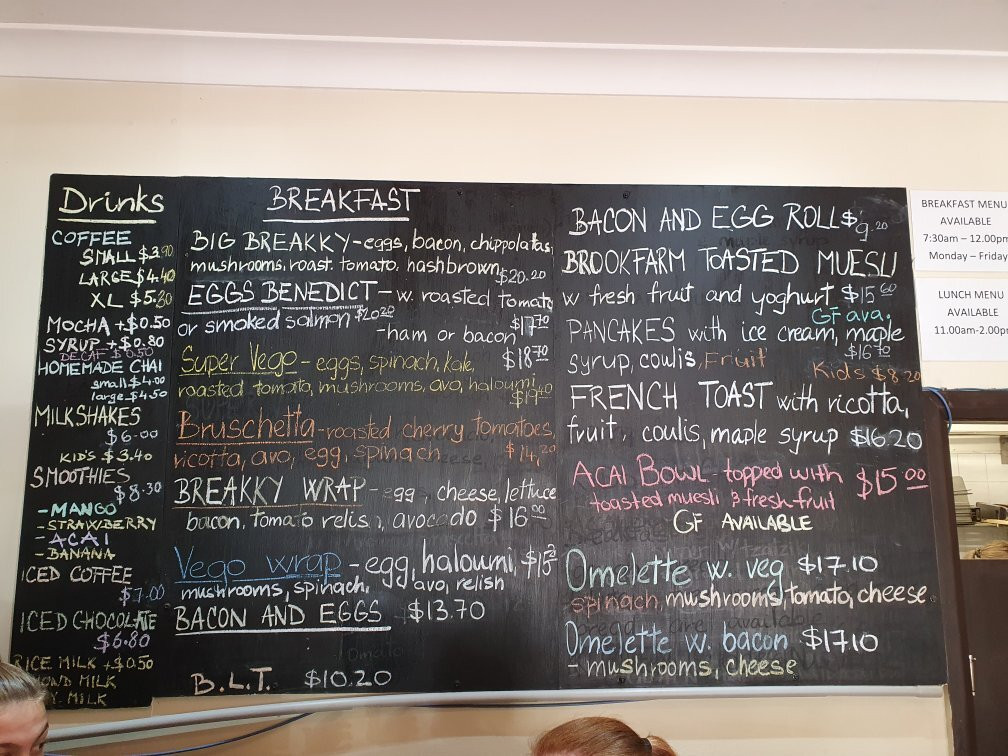 Drinks
COFFEE
SMALL $3.90
LARGE $4.40
XL $5.30
MOCHA +$0.50
SYRUP +$0.80
DECAF $0.50
HOMEMADE CHAI
small $4.00
large $4.50
MILKSHAKES
$6.00
KID'S $3.40
SMOOTHIES
$8.30
-MANGO
-STRAWBERRY
-ACAI
-BANANA
ICED COFFEE
$7.00
ICED CHOCOLATE
$6.80
RICE MILK +$0.50
MOND MILK
MILK
BREAKFAST
BIG BREAKKY - eggs, bacon, chippolatas,
mushrooms, roast. tomato. hashbrown $20.20
EGGS BENEDICT - w. roasted tomato
or smoked salmon $20.20
-ham or bacon $17.70
Super Vego - eggs, spinach, kale, $18.70
roasted tomato, mushrooms, avo, haloumi
$19.40
Bruschetta - roasted cherry tomatoes,
ricotta, avo, egg, spinach $14.20
BREAKKY WRAP - egg, cheese, lettuce
bacon, tomato relish, avocado $16.00
Vego wrap - egg, haloumi,
mushrooms, spinach, avo, relish
BACON AND EGGS $13.70
B.L.T. $10.20
BACON AND EGG ROLL $9.20
BROOKFARM TOASTED MUESLI
w fresh fruit and yoghurt $15.60
GF ava.
PANCAKES with ice cream, maple
syrup, coulis, Fruit $16.70
Kids $8.20
FRENCH TOAST with ricotta,
fruit, coulis, maple syrup $16.20
ACAI BOWL - topped with $15.00
toasted muesli & fresh fruit
GF AVAILABLE
Omelette w. veg $17.10
spinach, mushrooms, tomato, cheese
Omelette w. bacon $17.10
- mushrooms, cheese
BREAKFAST MENU
AVAILABLE
7:30am – 12.00pm
Monday – Friday
LUNCH MENU
AVAILABLE
11.00am-2.00p